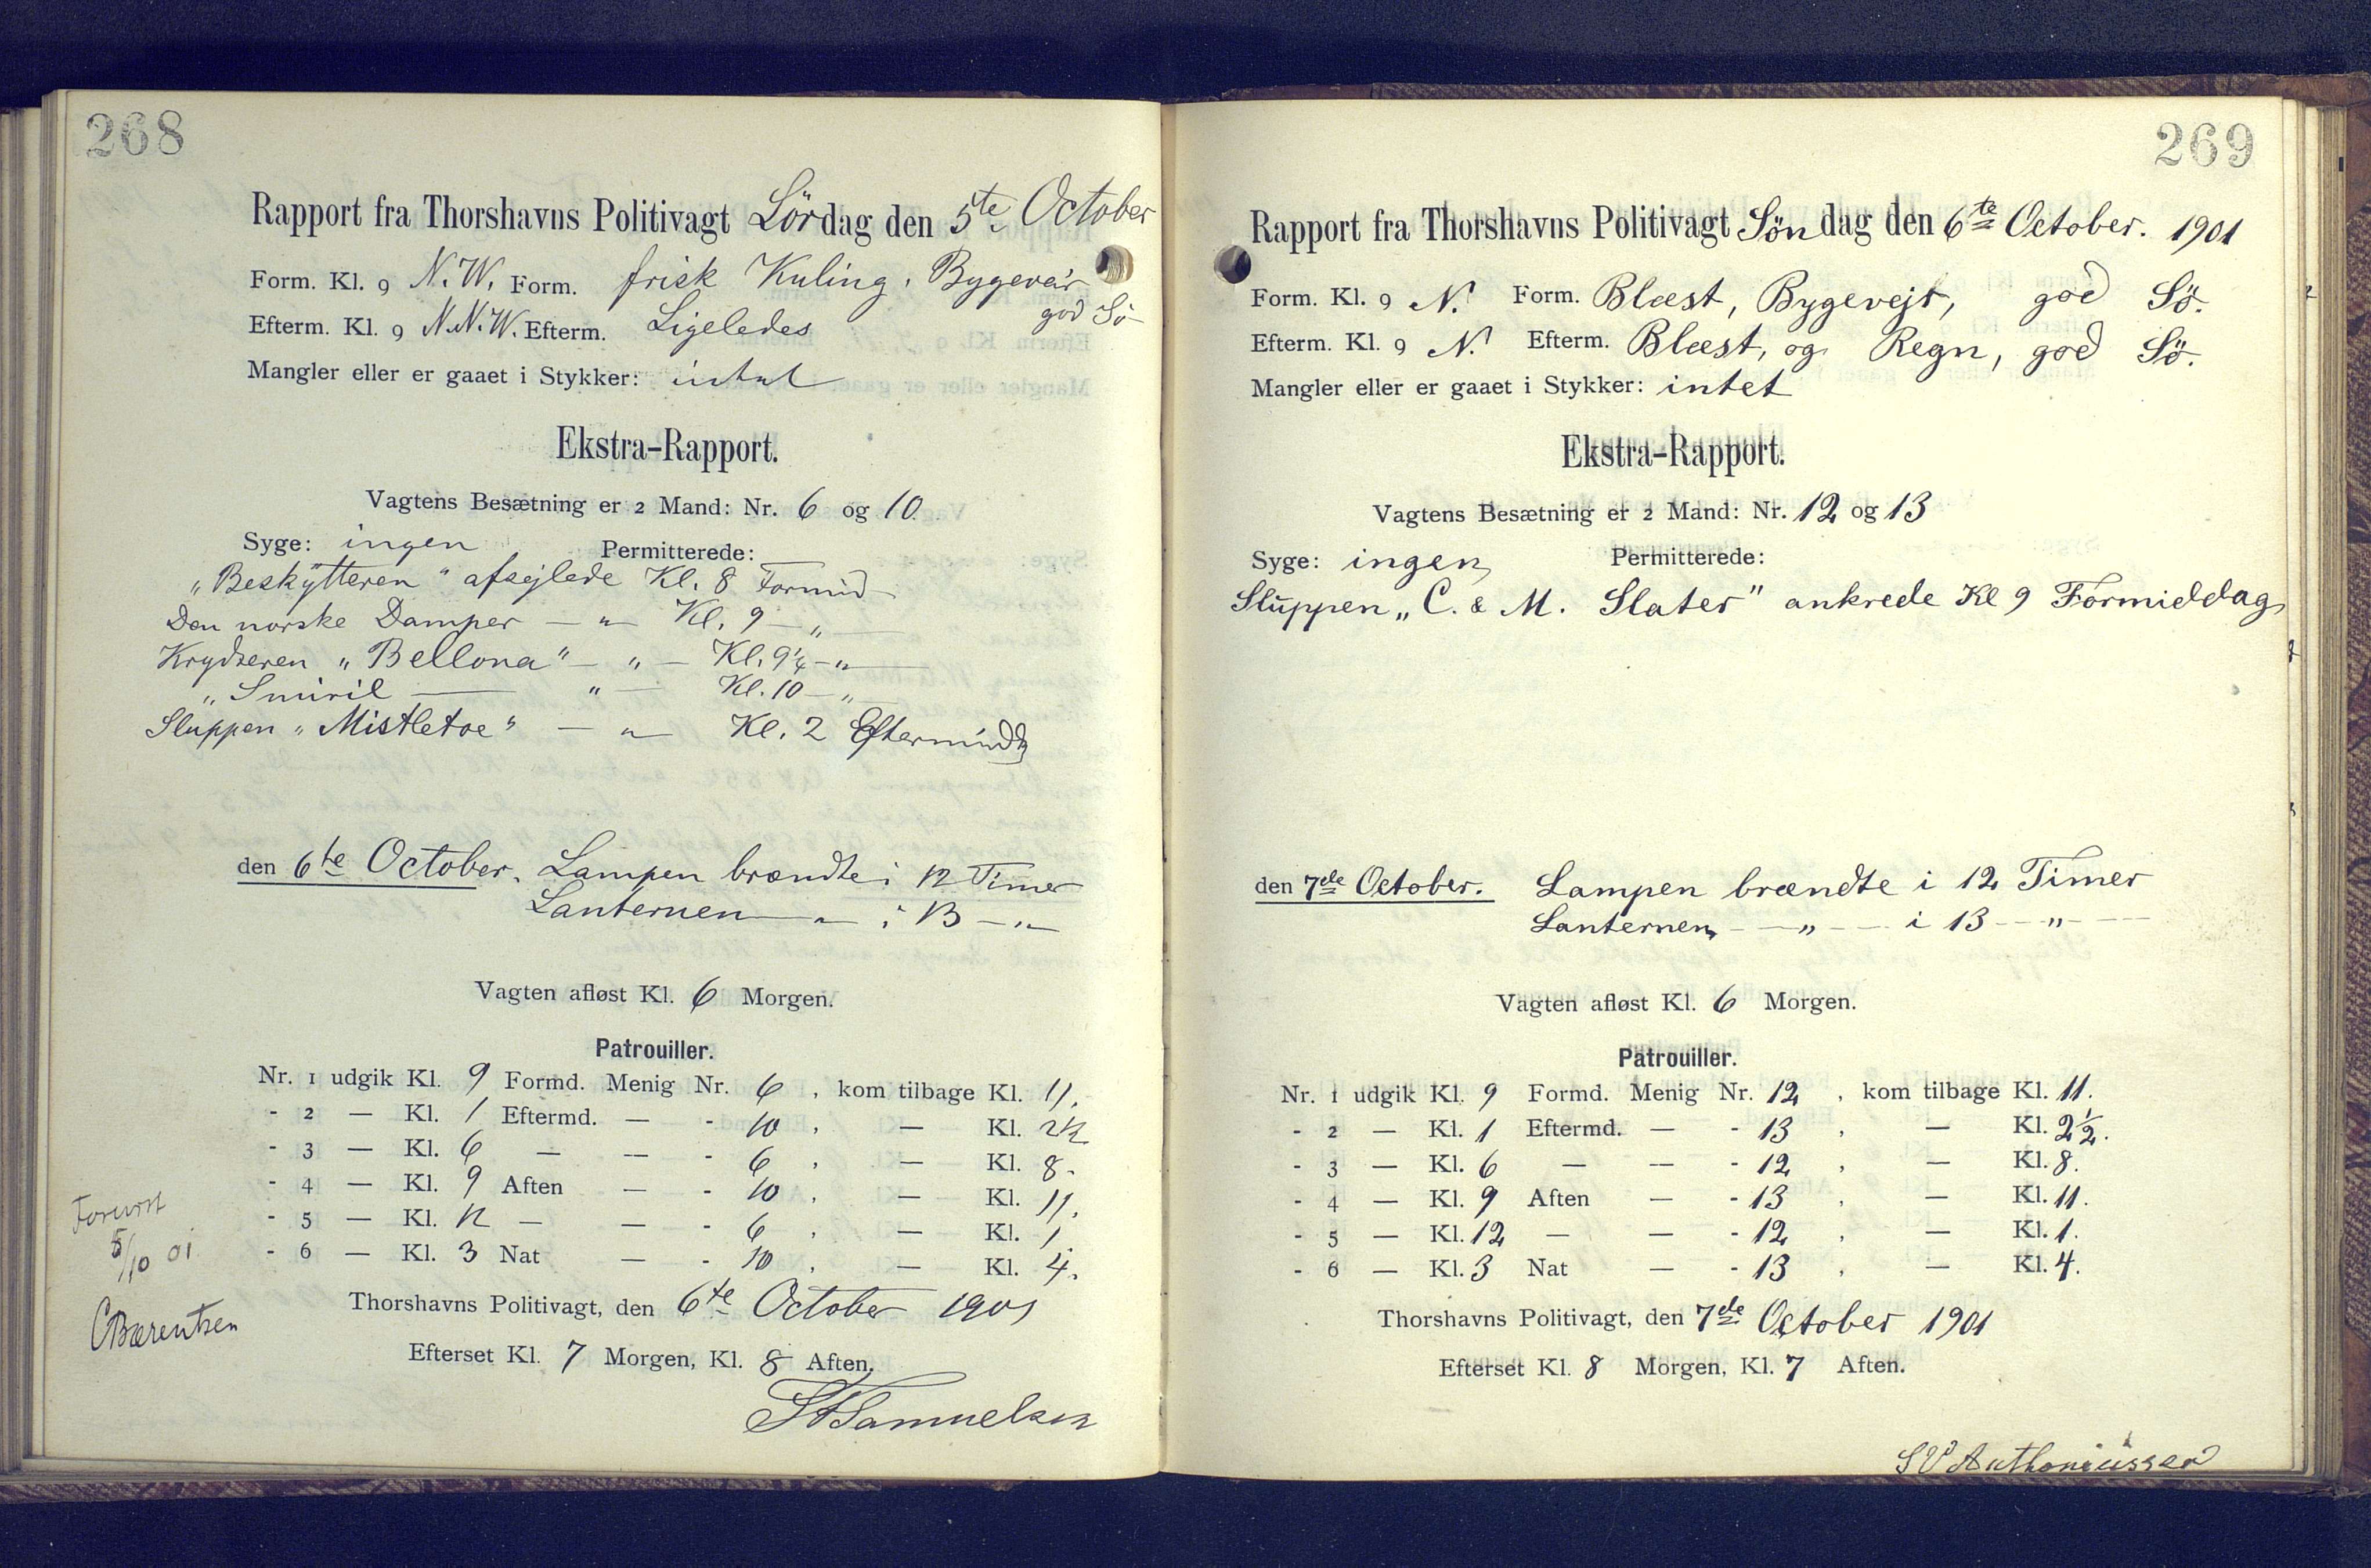 268
Rapport fra Thorshavns Politivagt Lördag den 5te October
Form. Kl. 9 N.W. Form. frisk Kuling, Bygeveir
god Sö
Efterm. Kl. 9 N.N.W. Efterm. Ligeledes
Mangler eller er gaaet i Stykker: intet
Ekstra-Rapport.
Vagtens Besætning er 2 Mand: Nr. 6 og 10.
Syge: ingen Permitterede:
"Beskytteren" afsejlede Kl. 8 Formid
Den norske Damper — " — Kl. 9 — " —
Krydseren "Bellona" — " — Kl. 9¼ — " —
"Smiril — " — Kl. 10 — " —
Sluppen "Mistletoe" — " — Kl. 2 Eftermidd
den 6te October. Lampen brændte i 12 Timer
Lanternen — " — i 13 — " —
Vagten afløst Kl. 6 Morgen.
Patrouiller.
Nr. 1 udgik Kl. 9 Formd. Menig Nr. 6, kom tilbage Kl. 11.
- 2 — Kl. 1 Eftermd. — - 10, — Kl. 2½
- 3 — Kl. 6 — — - 6, — Kl. 8.
- 4 — Kl. 9 Aften — - 10, — Kl. 11.
- 5 — Kl. 12 — — - 6, — Kl. 1
- 6 — Kl. 3 Nat — - 10, — Kl. 4.
Thorshavns Politivagt, den 6te October 1901
Efterset Kl. 7 Morgen, Kl. 8 Aften.
Samuelsen
Forevist
5/10 01
CBærentsen
269
Rapport fra Thorshavns Politivagt Söndag den 6te October. 1901
Form. Kl. 9 N. Form. Blæst, Bygevejr, god Sö.
Efterm. Kl. 9 N. Efterm. Blæst, og Regn, god Sö.
Mangler eller er gaaet i Stykker: intet
Ekstra-Rapport.
Vagtens Besætning er 2 Mand: Nr. 12 og 13
Syge: ingen Permitterede:
Sluppen "C. & M. Slater" ankrede Kl 9 Formiddag
den 7de October. Lampen brændte i 12 Timer
Lanternen — " — i 13 — " —
Vagten afløst Kl. 6 Morgen.
Patrouiller.
Nr. 1 udgik Kl. 9 Formd. Menig Nr. 12, kom tilbage Kl. 11.
- 2 — Kl. 1 Eftermd. — - 13, — Kl. 2½.
- 3 — Kl. 6 — — - 12, — Kl. 8.
- 4 — Kl. 9 Aften — - 13, — Kl. 11.
- 5 — Kl. 12 — — - 12, — Kl. 1.
- 6 — Kl. 3 Nat — - 13, — Kl. 4.
Thorshavns Politivagt, den 7de October 1901
Efterset Kl. 8 Morgen, Kl. 7 Aften.
SV Anthoniussen